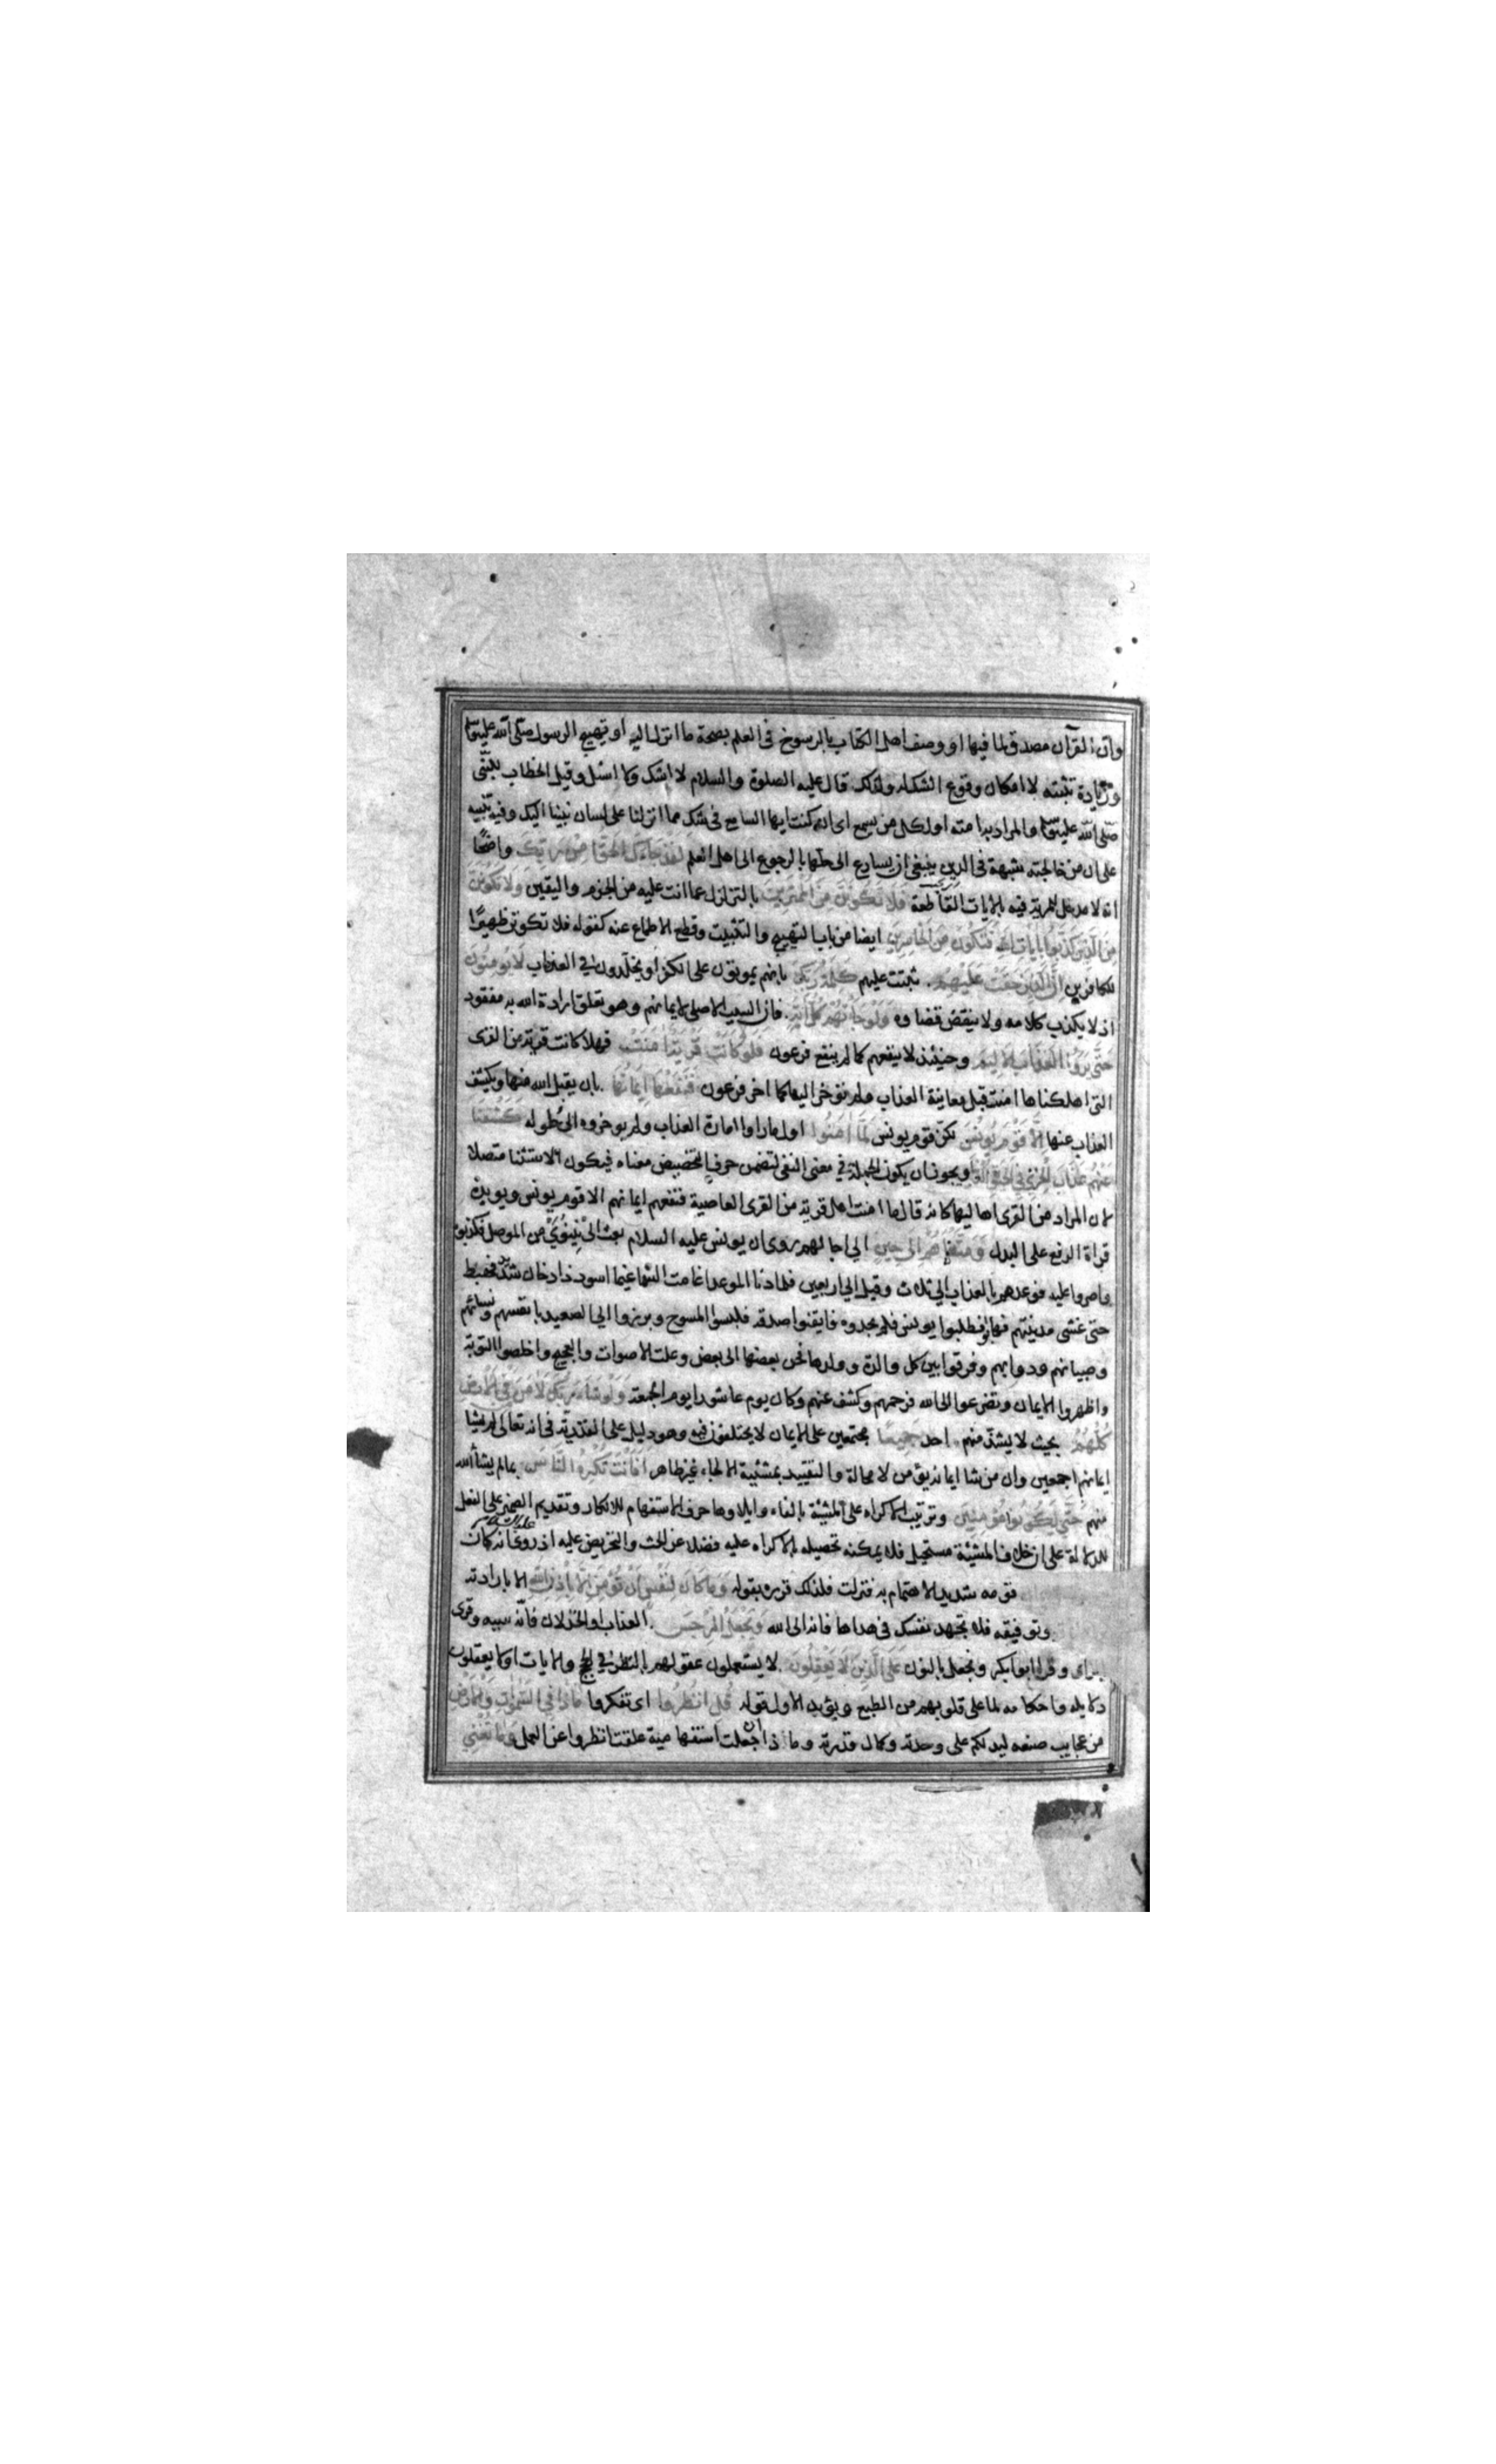 وان القرآن مصدق لما فيها او وصف اهل الكتاب بالرسوخ فى العلم بصحة ما انزل اليه او تهييج الرسول صلى الله عليه وسلم
وزيادة تثبته لا امكان وقوع الشك له ولذلك قال عليه الصلوة والسلام لا اشك ولا اسئل وقيل الخطاب للنبى
صلى الله عليه وسلم والمراد به امته او لكل من يسمع اى ان كنت ايها السامع فى شك مما انزلنا على لسان نبينا اليك وفيه تنبيه
على ان من خالجته شبهة فى الدين ينبغى ان يسارع الى حلها بالرجوع الى اهل العلم لقد جاءك الحق من ربك واضحًا
انه لا مدخل للمرية فيه بالايات القاطعة فلا تكونن من الممترين بالتزلزل عما انت عليه من الجزم واليقين ولا تكونن
من الذين كذبوا بايات الله فتكون من الخاسرين ايضا من باب التهييج والتثبيت وقطع الاطماع عنه كقوله فلا تكونن ظهيرًا
للكافرين ان الذين حقت عليهم ثبتت عليهم كلمة ربك بانهم يموتون على الكفر او يخلدون فى العذاب لا يومنون
اذ لا يكذب كلامه ولا ينقض قضاوه ولو جاءتهم كل اية فان السبب الاصلى لايمانهم وهو تعلق ارادة الله به مفقود
حتى يروا العذاب الاليم وحينئذ لا ينفعهم كما لم ينفع فرعون فلولا كانت قرية امنت فهلا كانت قرية من القرى
التى اهلكناها امنت قبل معاينة العذاب ولم نوخر اليها كما اخر فرعون فنفعها ايمانها بان يقبل الله منها ويكشف
العذاب عنها الا قوم يونس لكن قوم يونس لما امنوا اول ما راوا امارة العذاب ولم يوخروه الى حلوله كشفنا
عنهم عذاب الخزى فى الحيوة الدنيا ويجوز ان يكون الجملة فى معنى النفى لتضمن حرف التخضيض معناه فيكون الاستثنا متصلا
لان المراد من القرى اهاليها كانه قال ما امنت اهل قرية من القرى العاصية فنفعهم ايمانهم الا قوم يونس ويويده
قراة الرفع على البدل ومتعناهم الى حين الى اجالهم روى ان يونس عليه السلام بعث الى نينوى من الموصل فكذبوه
واصروا عليه فوعدهم بالعذاب الى ثلاث وقيل الى اربعين فلما دنا الموعد اغامت السما غيما اسود ذا دخان شديد فهبط
حتى غشى مدينتهم فهابوا فطلبوا يونس فلم يجدوه فايقنوا صدقه فلبسوا المسوح وبرزوا الى الصعيد بانفسهم ونسائهم
وصبيانهم ودوابهم وفرقوا بين كل والدة وولدها فحن بعضها الى بعض وعلت الاصوات والعجيج واخلصوا التوبة
واظهروا الايمان وتضرعوا الى الله فرحمهم وكشف عنهم وكان يوم عاشورا يوم الجمعة ولو شاء ربك لامن من فى الارض
كلهم بحيث لا يشذ منهم احد جميعا مجتمعين على الايمان لا يختلفون فيه وهو دليل على القدرية فى انه تعالى لم يشا
ايمانهم اجمعين وان من شا ايمانه يؤمن لا محالة والتقييد بمشئية الالجاء غير ظاهر افانت تكره الناس بما لم يشأ الله
منهم حتى يكونوا مؤمنين وترتيب الاكراه على المشيئة بالفاء وايلاوها حرف الاستفهام للانكار وتقديم الضمير على الفعل
للدلالة على ان خلاف المشيئة مستحيل فلا يمكنه تحصيله بالاكراه عليه فضلا عن الحث والتحريض عليه اذ روى انه كان عليه السلام
قومه شديد الاهتمام به فنزلت فلذلك قرره بقوله وما كان لنفس ان تؤمن الا باذن الله الا بارادته
وتوفيقه فلا تجهد نفسك فى هداها فانه الى الله ويجعل الرجس العذاب او الخذلان فانه سببه وقرى
بالزاى وقرا ابو بكر ونجعل بالنون على الذين لا يعقلون لا يستعملون عقولهم بالنظر فى الحجج والايات او لا يعقلون
دلايله واحكامه لما على قلوبهم من الطبع ويؤيد الاول قوله قل انظروا اى تفكروا ماذا فى السموات والارض
من عجايب صنعه ليدلكم على وحدته وكمال قدرته وماذا ان جعلت استفهامية علقت انظروا عن العمل وما تغنى